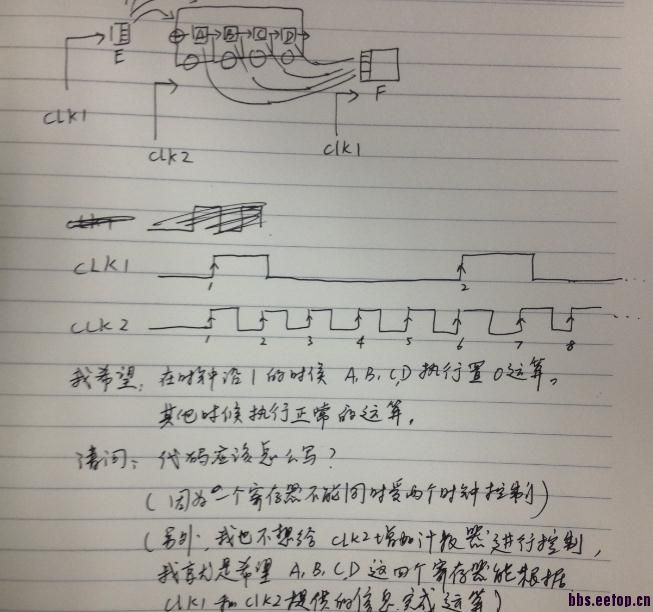 A B C D
E
F
CLK1
CLK2
CLK1
CLK1
CLK1
1 2
CLK2
1 2 3 4 5 6 7 8
我希望: 在时钟沿1的时候 A,B,C,D 执行置0运算。
其他时候执行正常的运算。
请问: 代码应该怎么写?
(因为一个寄存器不能同时受两个时钟控制)
(另外,我也不想给 CLK2 增加计数器进行控制,
我就是希望 A,B,C,D 这四个寄存器能根据
CLK1 和 CLK2 提供的信息完成运算)
bbs.eetop.cn